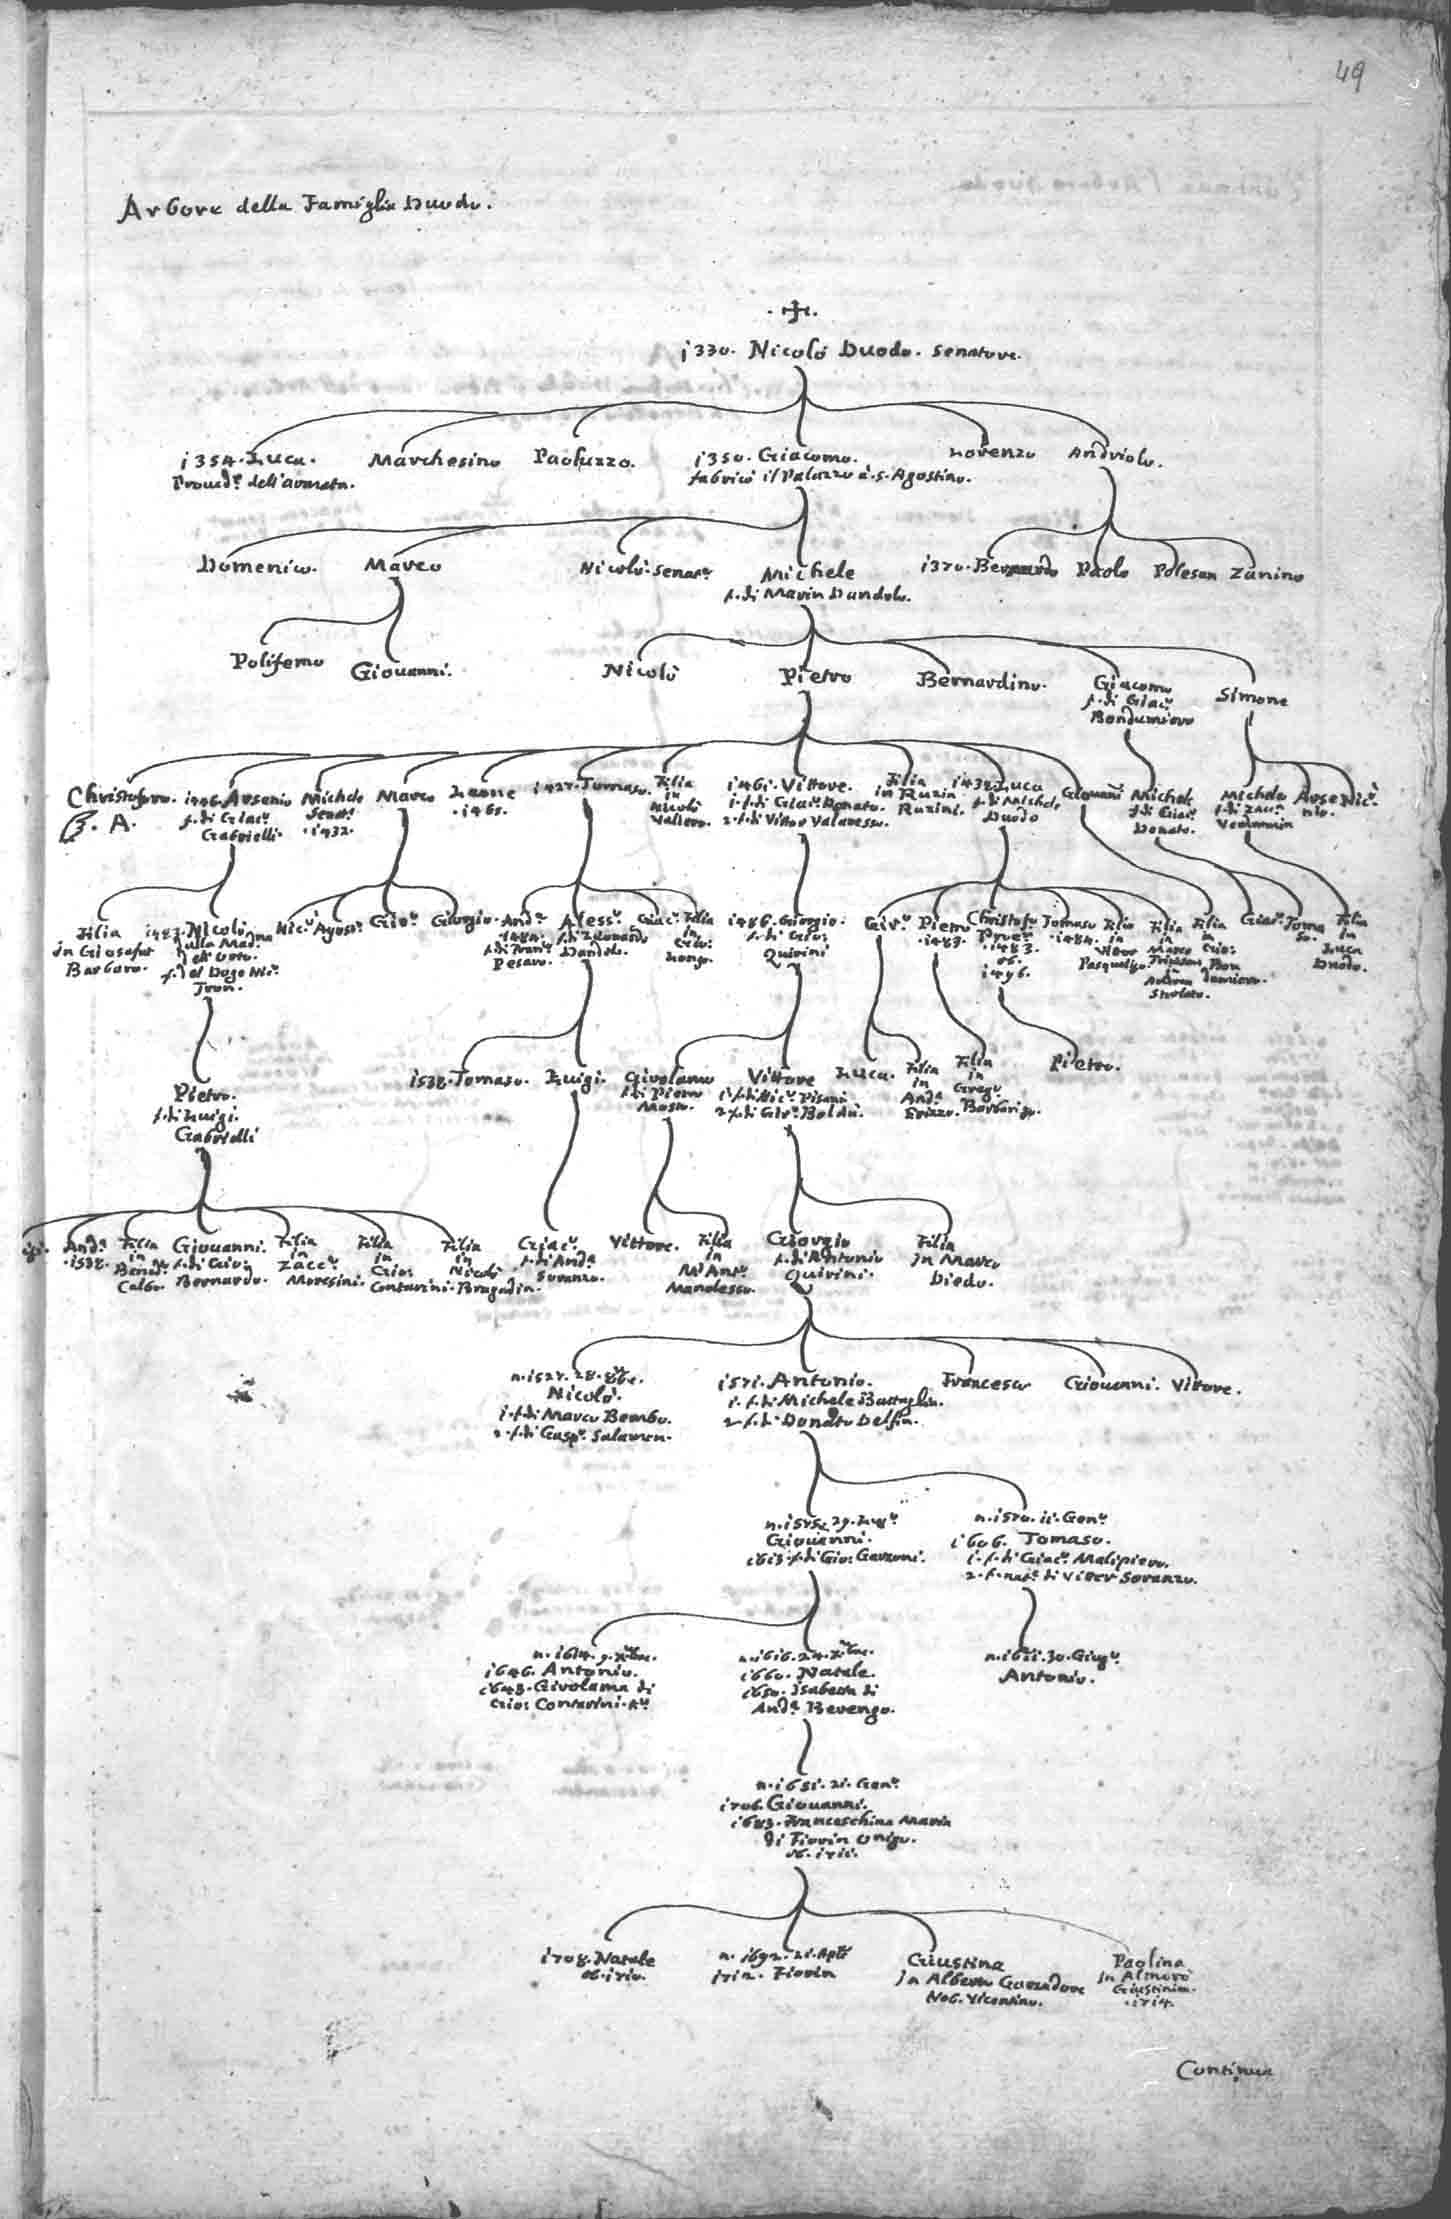 49
Arbore della Famiglia Duodo.
i330. Nicolò Duodo. Senatore.
i354. Luca.
Proued.r dell'armata.
Marchesino
Paoluzzo.
i350. Giacomo.
fabricò il Palazzo à S. Agostino.
Lorenzo
Andriolo.
Domenico.
Marco
Nicolò. Senat.r
Michele
f. di Marin Dandolo.
i370. Bernardo
Paolo
Polesan
Zanino
Polifemo
Giouanni.
Nicolò
Pietro
Bernardino.
Giacomo
f. di Giac.o
Bondumiero
Simone
Christoforo.
A.
i446. Arsenio
f. di Giac.o
Gabrielli.
Michele
Senat.r
.i432.
Marco
Leone
.i465.
i427. Tomaso.
Filia
in
Nicolò
Vallero.
i461. Vittore.
i. f. di Giac.o Donato.
2. f. di Vittor Valaresso.
Filia
in Ruzin
Ruzini.
i432. Luca
f. di Michele
Duodo
Giouanni
Michele
f. di Giac.o
Donato.
Michele
f. di Zacc.a
Vendramin
Arsenio.
Nic.ò
Filia
in Giosafat
Barbaro.
i483. Nicolò
alla Mad.na
dell'Orto.
f. del Doge Nic.ò
Tron.
Nic.ò
Agost.o
Gio.
Giorgio.
And.a
.i484.
f. di Fran.co
Pesaro.
Aless.o
f. di Leonardo
Dandolo.
Giac.o
Filia
in
Gio:
Longo.
i486. Giorgio.
f. di Gio:
Quirini
Gio.
Pietro
.i483.
Christofo.
Proc.r
.i483.
ob.
i496.
Tomaso
.i484.
Filia
in
Vitor
Pasqualigo.
Filia
in
Marco
Triuisan
in
Andrea
Filia
in
Gio:
Bondumiero.
Giac.o
Tomaso.
Filia
in
Luca
Duodo.
Pietro.
f. di Luigi.
Gabrielli
i538. Tomaso.
Luigi.
Girolamo
f. di Piero
Mosto.
Vittore
i. f. di Nic.ò Pisani
2. f. di Gio. Boldù.
Luca.
Filia
in
And.a
Erizzo.
Filia
in
Greg.o
Barbarigo.
Pietro.
And.a
.i538.
Filia
in
Bened.o
Calbo.
Giouanni.
f. di Gio:
Bernardo.
Filia
in
Zacc.a
Moresini.
Filia
in
Gio:
Contarini.
Filia
in
Nicolò
Bragadin.
Giac.o
f. di And.a
Soranzo.
Vittore.
Filia
in
M'Ant.o
Manolesso.
Giorgio
f. di Antonio
Quirini.
Filia
in Marco
Diedo.
n. i527. 28. 8bre.
Nicolò.
i. f. di Marco Bembo.
2. f. di Gasp.o Salamon.
i571. Antonio.
i. f. di Michele Battaglia.
2. f. di Donato Delfin.
Francesco
Giouanni.
Vittore.
n. i575. 29. Lug.o
Giouanni.
i613. f. di Gio: Garzoni.
n. i570. ii. Gen.o
i606. Tomaso.
i. f. di Giac.o Malipiero.
2. f. nat. di Vitter Soranzo.
n. i614. 9. Xbre.
i646. Antonio.
i648. Girolama di
Gio: Contarini. K.r
n. i616. 24. Xbre.
i660. Natale.
i650. Isabetta di
And.a Berengo.
n. i6ii. 30. Giug.o
Antonio.
n. i651. 21. Gen.o
i706. Giouanni.
i683. Franceschina Maria
di Fiorin Onigo.
ob. i7ii.
i708. Natale
ob. i7io.
n. i692. 21. Aple
i7i2. Fiorin
Giustina
in Alberto Garzadore
Nob. Vicentino.
Paolina
in Almorò
Giustinian.
.i714.
Continua